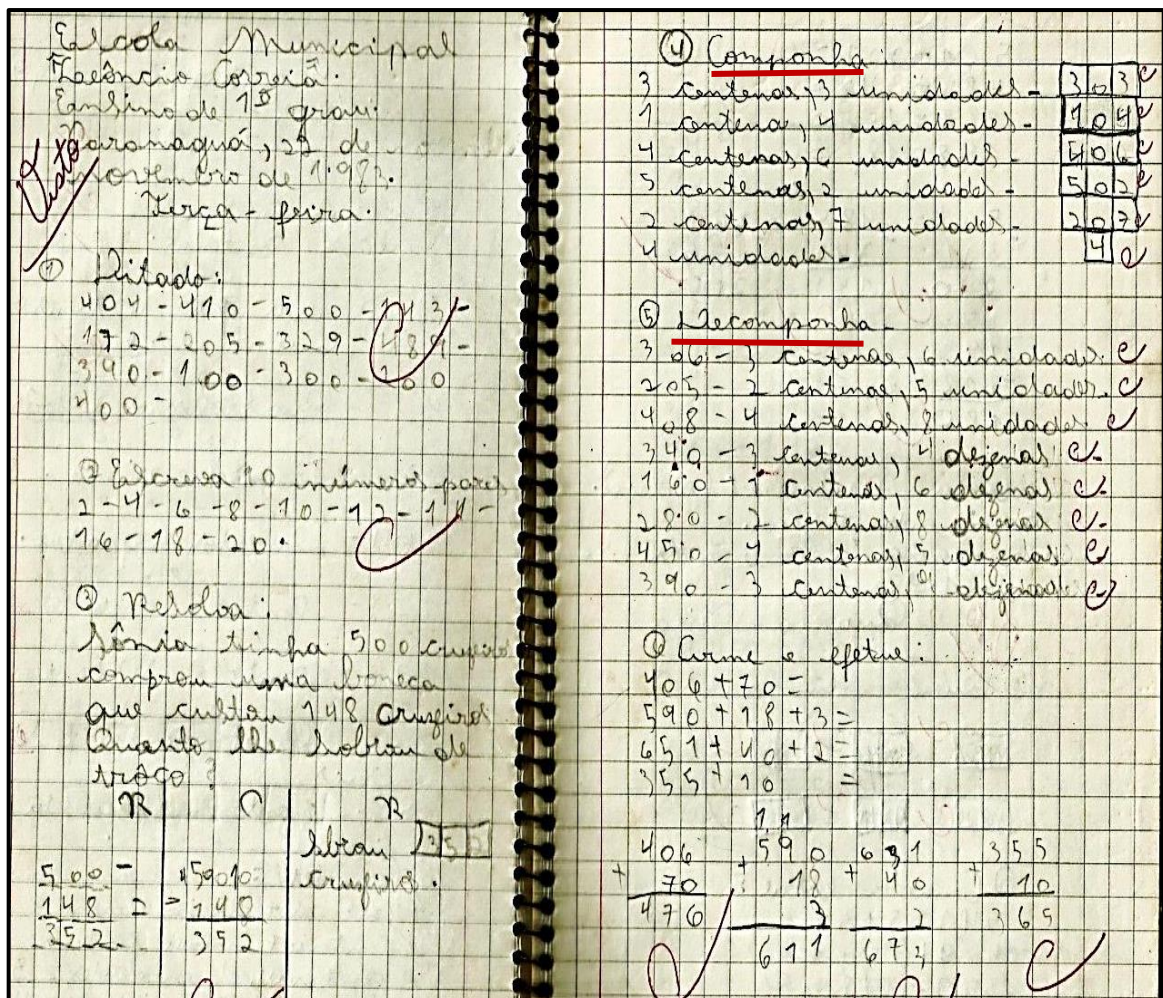 Escola Municipal
Leôncio Correia.
Ensino de 1º grau.
Paranaguá, 22 de
novembro de 1.983.
Terça-feira.
Visto
① Ditado:
404 - 410 - 500 - 143 -
172 - 205 - 329 - 489 -
390 - 1.00 - 300 - 200
400 -
② Escreva 10 números pares
2 - 4 - 6 - 8 - 10 - 12 - 14 -
16 - 18 - 20.
③ Resolva:
Sônia tinha 500 cruzeiros
comprou uma boneca
que custou 148 cruzeiros
Quanto lhe sobrou de
trôco?
R C R
Sobrou 352
cruzeiros.
500 -
148 =
352
148
352
④ Componha:
3 centenas, 3 unidades - 303 c
1 centena, 4 unidades - 104 c
4 centenas, 6 unidades - 406 c
5 centenas, 2 unidades - 502 c
2 centenas, 7 unidades - 207 c
4 unidades - 4 c
⑤ Decomponha -
306 - 3 centenas, 6 unidades. c
205 - 2 centenas, 5 unidades. c
408 - 4 centenas, 8 unidades c
340 - 3 centenas, 4 dezenas c
160 - 1 centenas, 6 dezenas c
280 - 2 centenas, 8 dezenas c
450 - 4 centenas, 5 dezenas c
390 - 3 centenas, 9 dezenas c
⑥ Arme e efetue:
406 + 70 =
590 + 18 + 3 =
651 + 40 + 2 =
355 + 10 =
11
406 590 631 355
+ 70 + 18 + 40 + 10
476 3 2 365
611 673